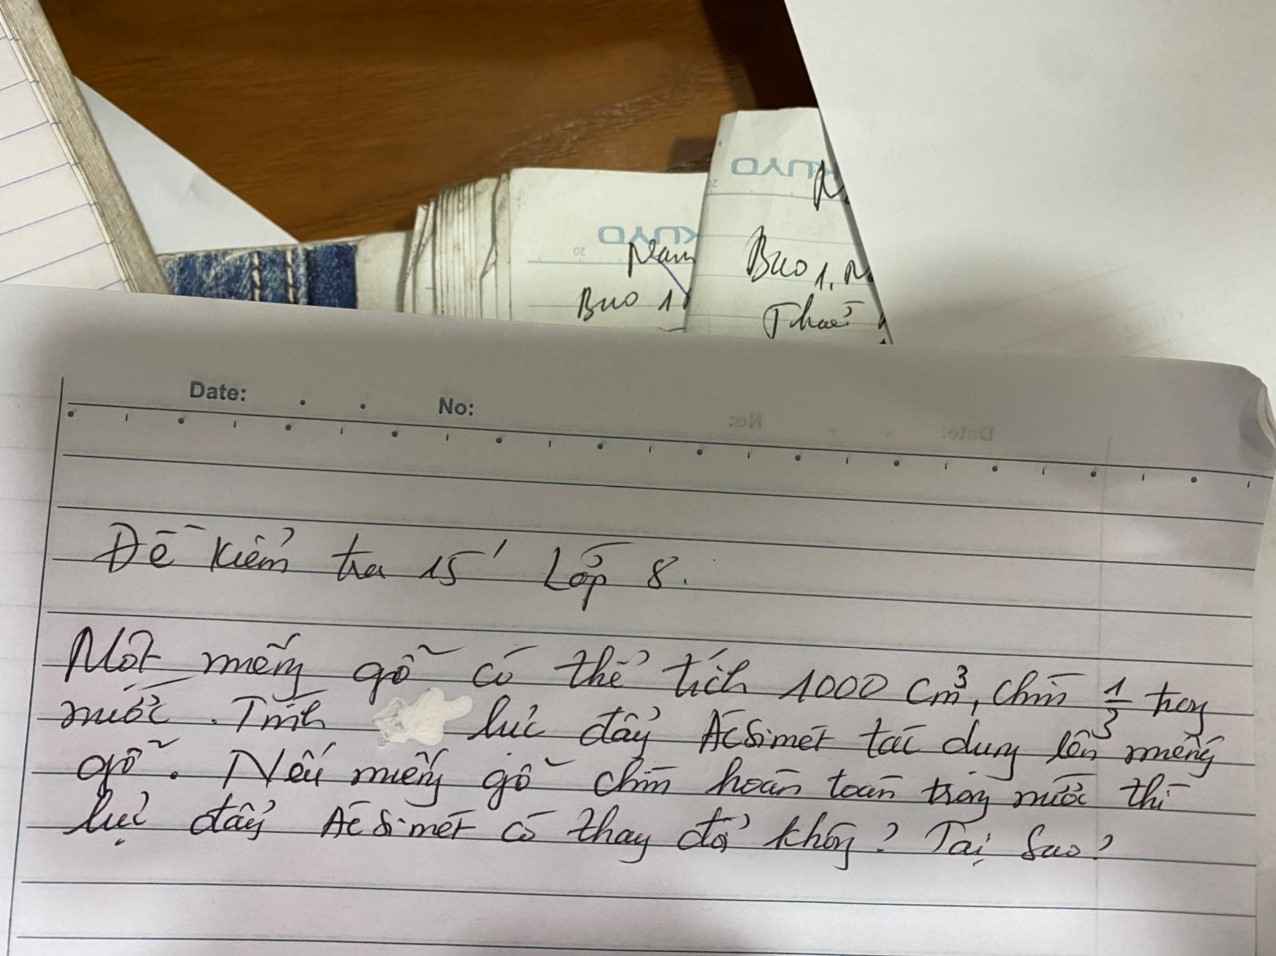 KUYO
KUYO
Nam
Buo 1
Buo 1. N
Date: . . No:
Đề kiểm tra 15' Lớp 8.
Một miếng gỗ có thể tích 1000 cm³, chìm 1/3 trong
nước. Tính lực đẩy Acsimet tác dụng lên miếng
gỗ. Nếu miếng gỗ chìm hoàn toàn trong nước thì
lực đẩy Acsimet có thay đổi không? Tại sao?